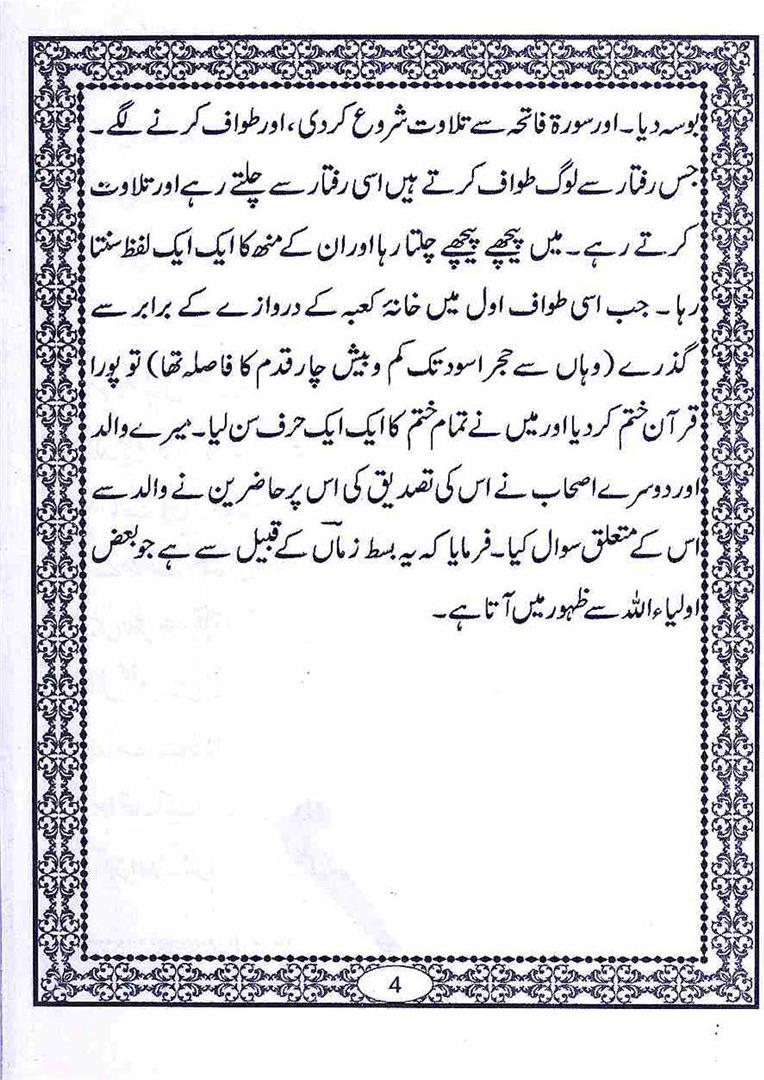 بوسہ دیا۔ اور سورۃ فاتحہ سے تلاوت شروع کردی، اور طواف کرنے لگے۔
جس رفتار سے لوگ طواف کرتے ہیں اسی رفتار سے چلتے رہے اور تلاوت
کرتے رہے۔ میں پیچھے پیچھے چلتا رہا اور ان کے منھ کا ایک ایک لفظ سنتا
رہا۔ جب اسی طواف اول میں خانۂ کعبہ کے دروازے کے برابر سے
گذرے (وہاں سے حجر اسود تک کم و بیش چار قدم کا فاصلہ تھا) تو پورا
قرآن ختم کردیا اور میں نے تمام ختم کا ایک ایک حرف سن لیا۔ میرے والد
اور دوسرے اصحاب نے اس کی تصدیق کی اس پر حاضرین نے والد سے
اس کے متعلق سوال کیا۔ فرمایا کہ یہ بسط زماں کے قبیل سے ہے جو بعض
اولیاء اللہ سے ظہور میں آتا ہے۔
4